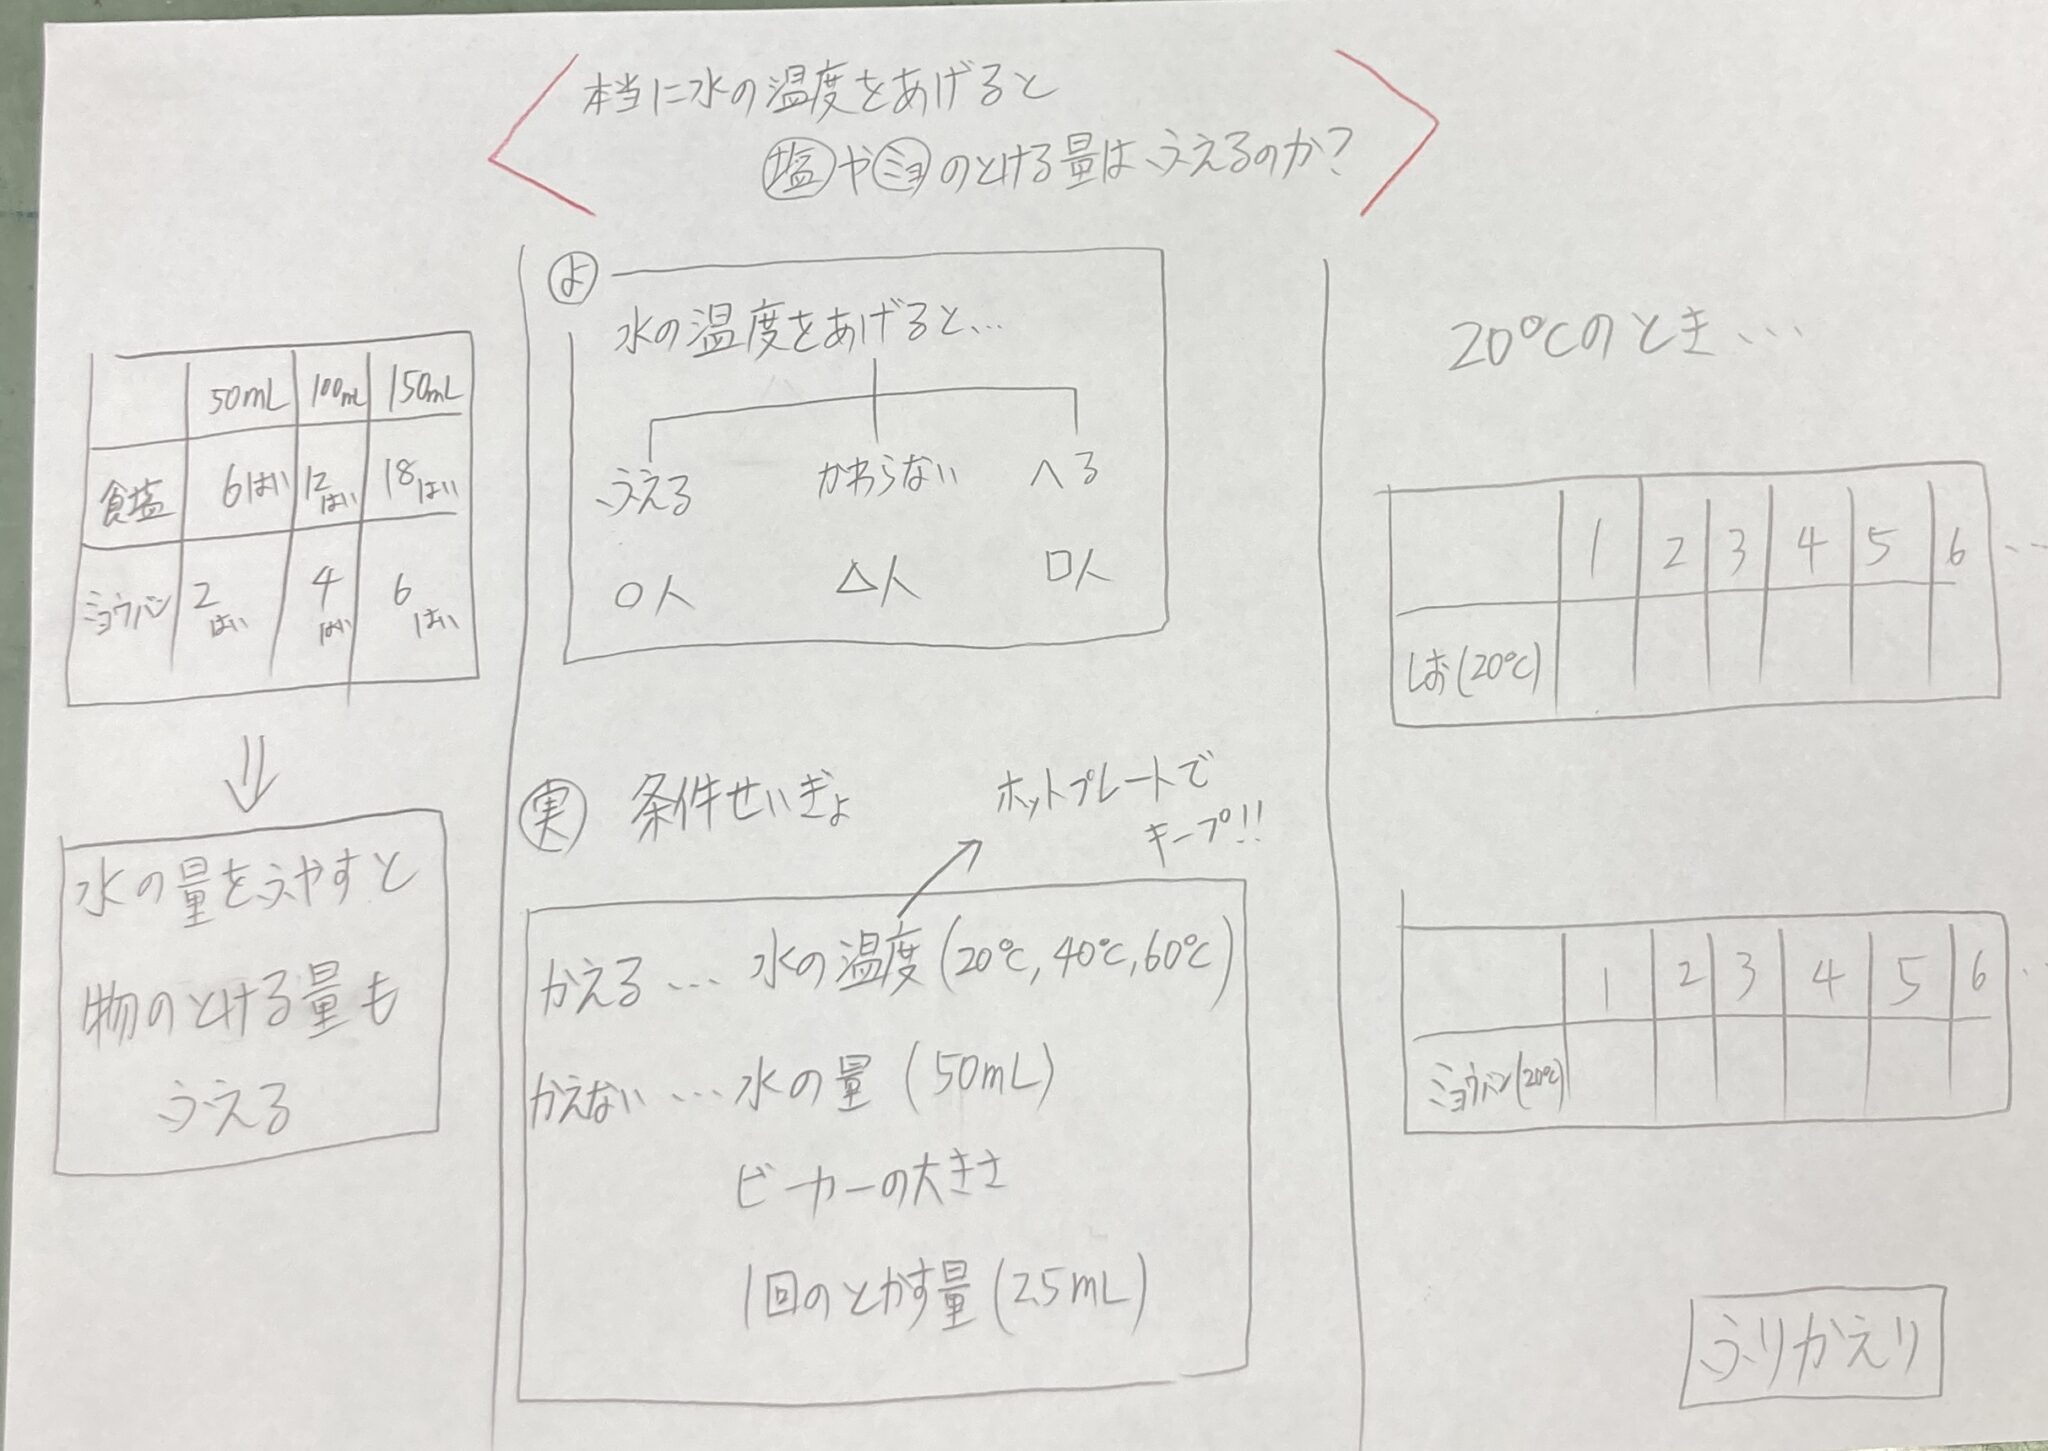 本当に水の温度をあげると
塩やミョのとける量はふえるのか?
50mL 100mL 150mL
食塩 6はい 12はい 18はい
ミョウバン 2はい 4はい 6はい
⇓
水の量をふやすと
物のとける量も
ふえる
よ
水の温度をあげると...
ふえる かわらない へる
○人 △人 □人
実 条件せいぎょ
ホットプレートで
キープ!!
かえる... 水の温度(20℃, 40℃, 60℃)
かえない...水の量(50mL)
ビーカーの大きさ
1回のとかす量(2.5mL)
20℃のとき...
1 2 3 4 5 6 ...
しお(20℃)
1 2 3 4 5 6 ...
ミョウバン(20℃)
ふりかえり